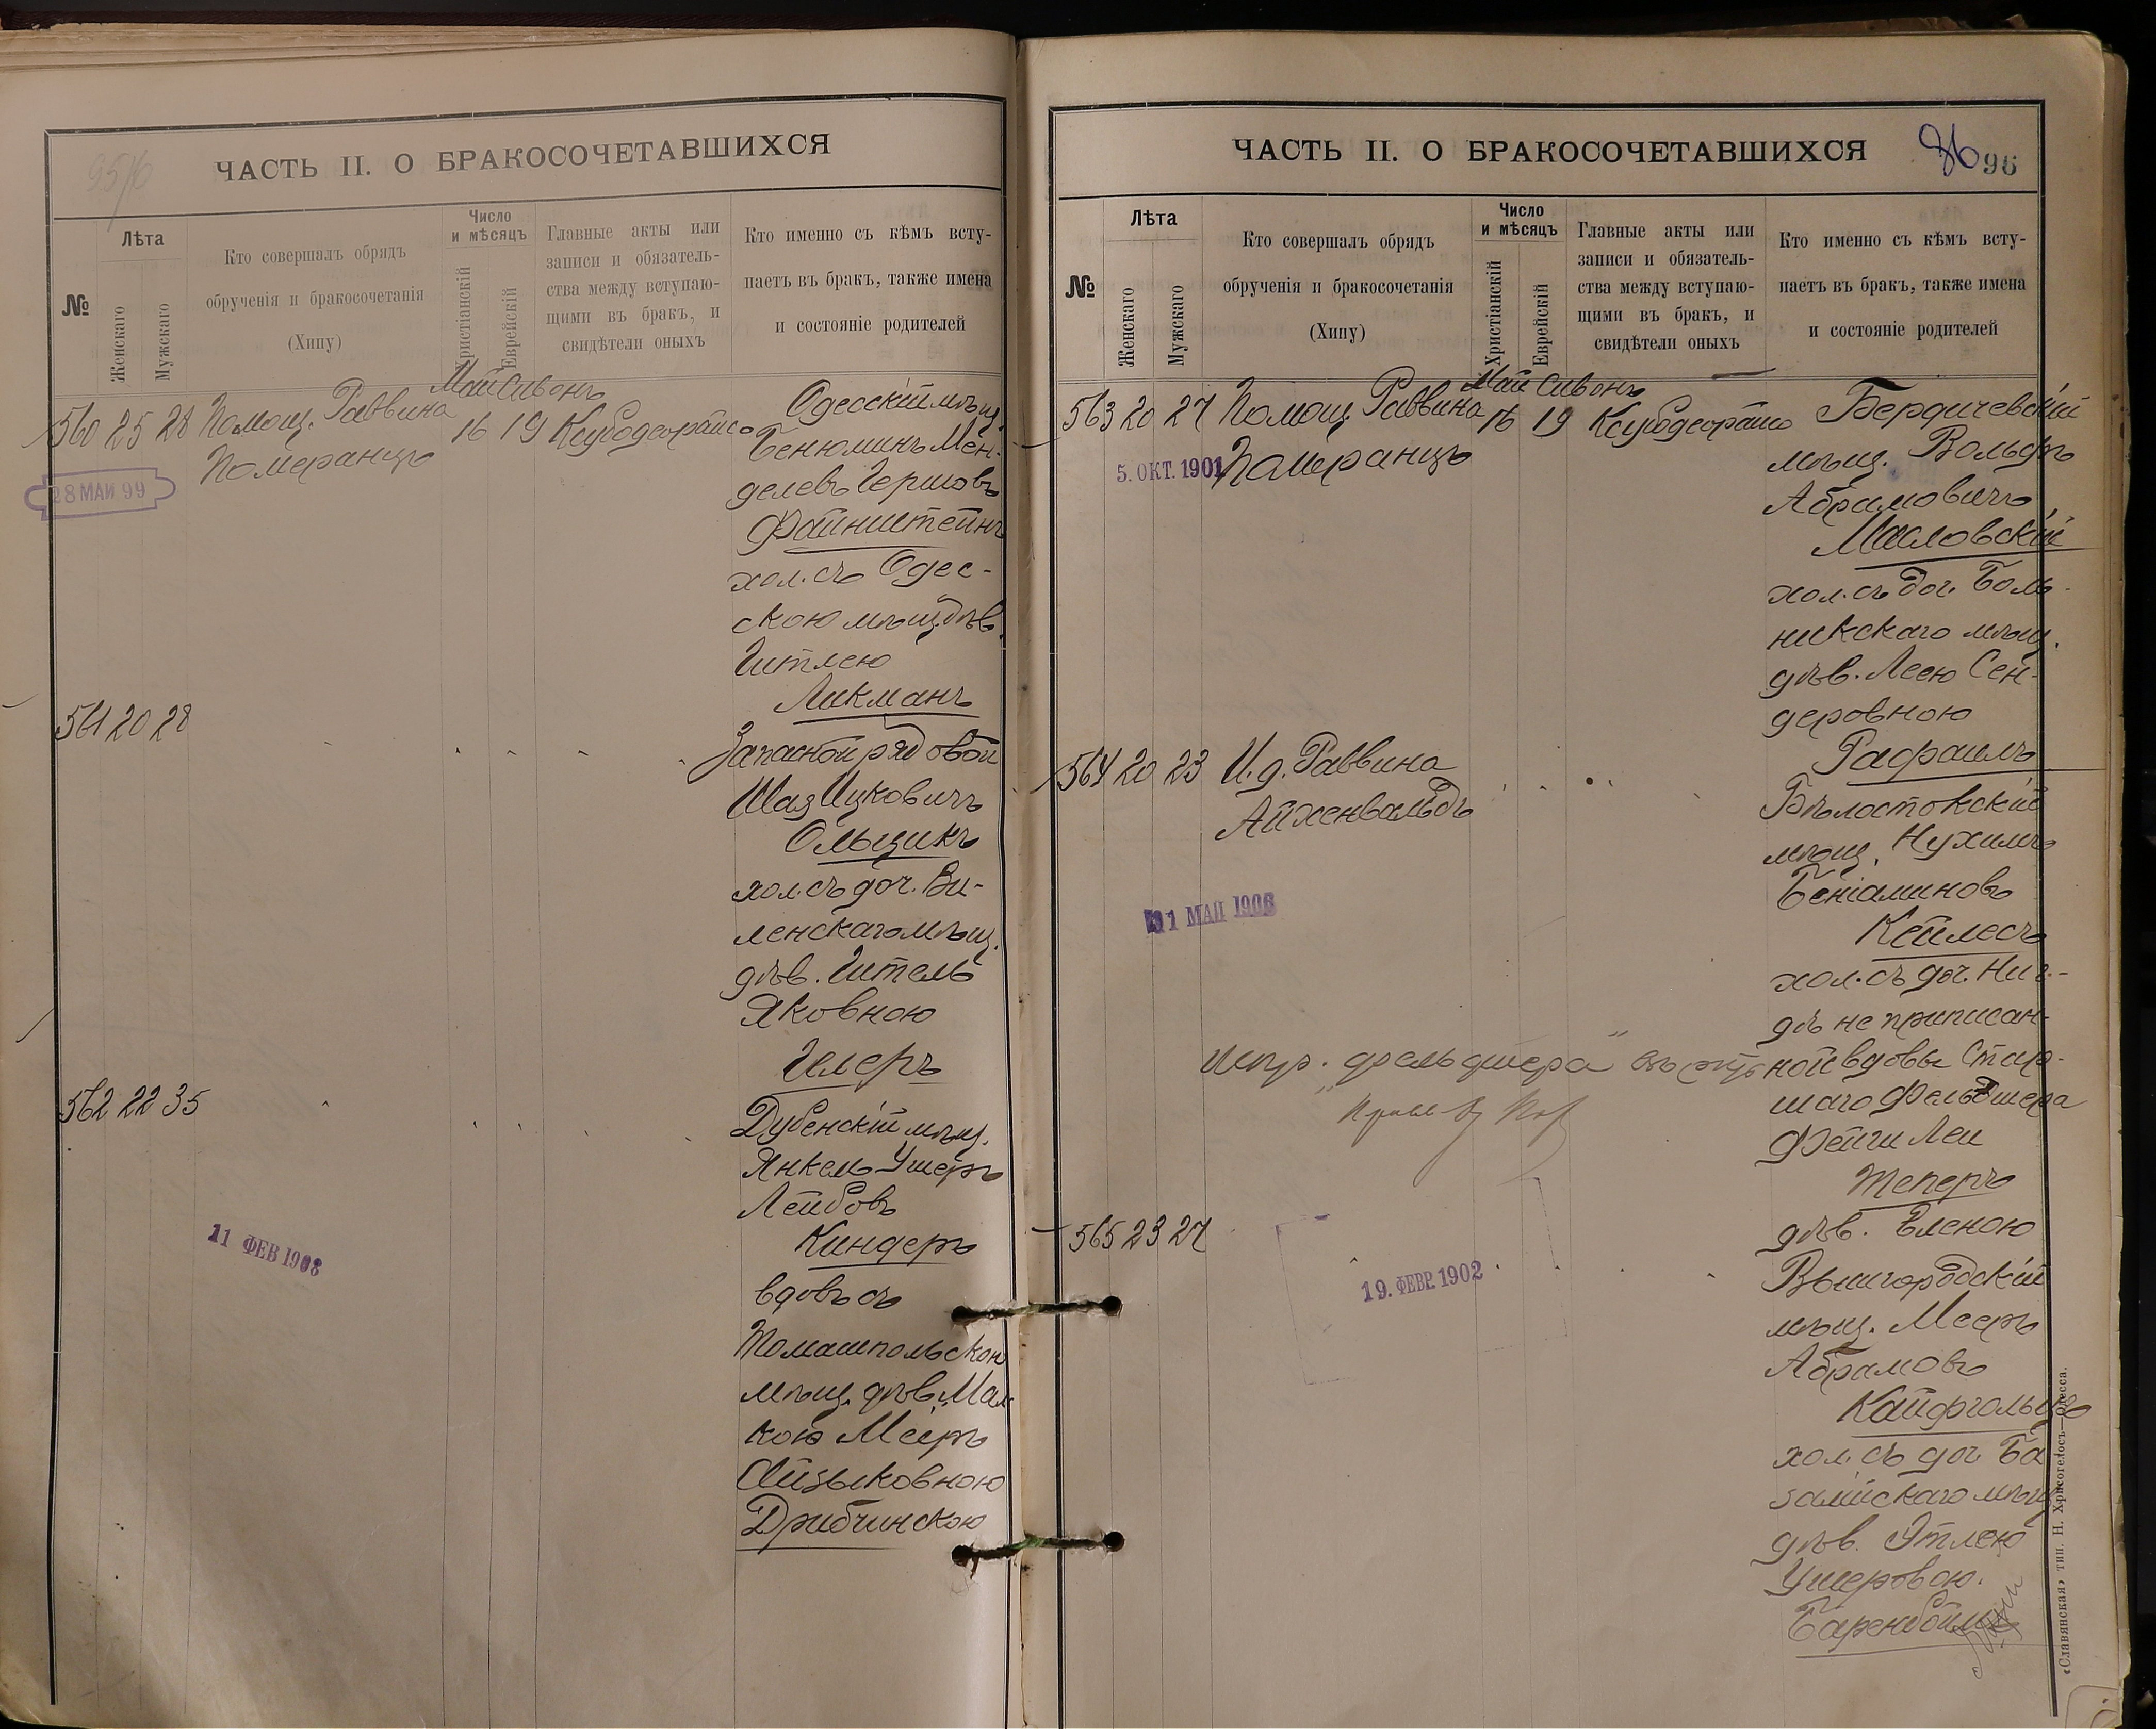 95/6
ЧАСТЬ II. О БРАКОСОЧЕТАВШИХСЯ
№
Лѣта
Женскаго
Мужскаго
Кто совершалъ обрядъ
обрученія и бракосочетанія
(Хипу)
Число
и мѣсяцъ
Христіанскій
Еврейскій
Главные акты или
записи и обязатель-
ства между вступаю-
щими въ бракъ, и
свидѣтели оныхъ
Кто именно съ кѣмъ всту-
паетъ въ бракъ, также имена
и состояніе родителей
Май Сивонъ
560 25 28 Помощ. Раввина 16 19
Померанцъ
28 МАЙ 99
Одесскій мѣщ.
Бенюминъ Мен-
делевъ Гершовъ
Файнштейнъ
хол. съ Одес-
скою мѣщ. дѣв.
Гитлею
Ликманъ
561 20 28
Запасной рядовой
Шая Ицковичъ
Ольщикъ
хол. съ доч. Ви-
ленскаго мѣщ.
дѣв. Гитель
Яковною
Гилеръ
562 22 35
Дубенскій мѣщ.
Янкель Ушеръ
Лейбовъ
Киндеръ
вдовъ съ
Томашпольскою
мѣщ. дѣв. Мал
кою Мееръ
Айзыковною
Дрибчинскою
11 ФЕВ 1908
ЧАСТЬ II. О БРАКОСОЧЕТАВШИХСЯ
96 96
№
Лѣта
Женскаго
Мужскаго
Кто совершалъ обрядъ
обрученія и бракосочетанія
(Хипу)
Число
и мѣсяцъ
Христіанскій
Еврейскій
Главные акты или
записи и обязатель-
ства между вступаю-
щими въ бракъ, и
свидѣтели оныхъ
Кто именно съ кѣмъ всту-
паетъ въ бракъ, также имена
и состояніе родителей
Май Сивонъ
563 20 27 Помощ. Раввина 16 19
Померанцъ
5. ОКТ. 1901
Бердичевскій
мѣщ. Вольфъ
Абрамовичъ
Масловскій
хол. съ доч.
мѣщ.
дѣв. Леею Сен-
деровною
Рафаилъ
564 20 23 И. д. Раввина
Айхенвальдъ
Бѣлостокскій
мѣщ. Нухимъ
Беніаминовъ
Кейлесъ
хол. съ доч. Ниг-
дѣ не приписан-
ной вдовы Стар-
шаго Фельдшера
Фейги Леи
Теперъ
дѣв. Еленою
31 МАЙ 1906
Испр. „фельдшера“
565 23 27
Вышгородскій
мѣщ. Мееръ
Абрамовъ
Кайфгольцъ
хол. съ доч. Ба
залійскаго мѣщ.
дѣв. Этлею
Ушеровою.
Баренбоймъ
19. ФЕВР. 1902
«Славянская» тип. Н. Хрисогелосъ—Одесса.